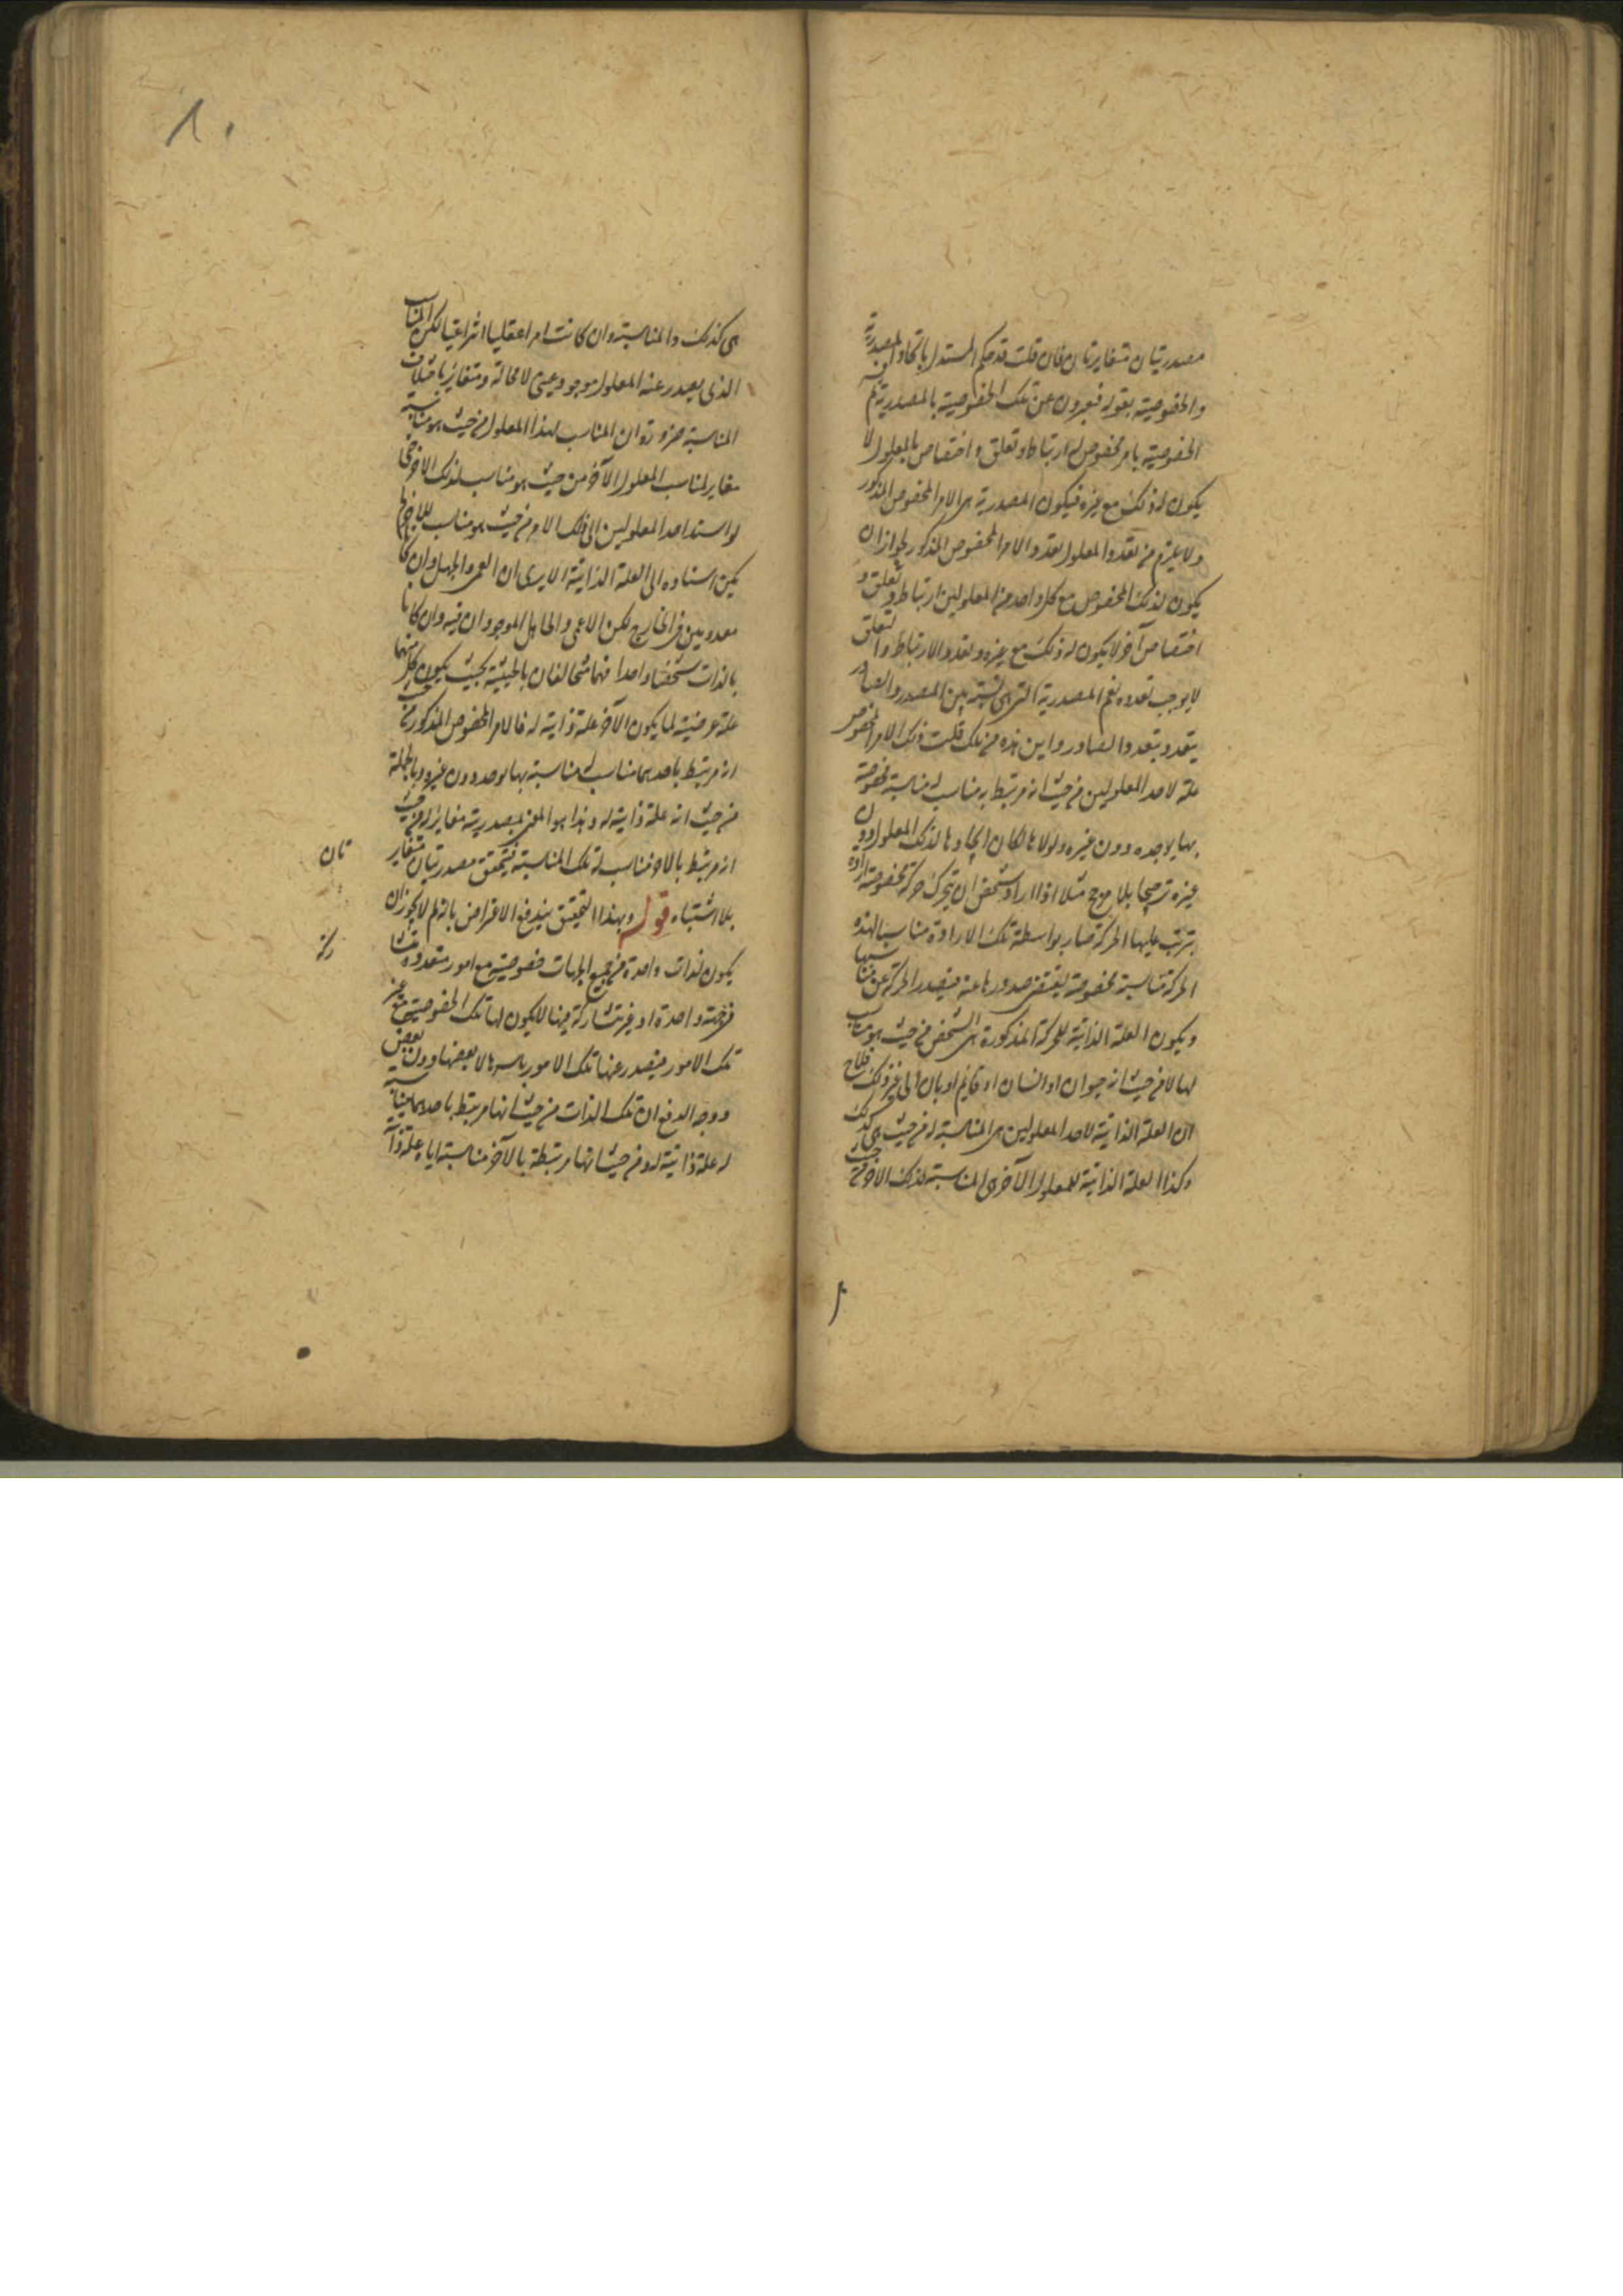 مصدريتان متغايرتان فان قلت قد حكم المستدل باتحاد المصدرية
والخصوصية بقوله فيعبرون عن تلك الخصوصية بالمصدرية ثم
الخصوصية بامر مخصوص له ارتباط وتعلق واختصاص بالمعلول لا
يكون له ذلك مع غيره فيكون المصدرية هى الامر المخصوص المذكور
ولا يلزم من تعدد المعلول تعدد الامر المخصوص المذكور لجواز ان
يكون لذلك المخصوص مع كل واحد من المعلولين ارتباط وتعلق و
اختصاص آخر لا يكون له ذلك مع غيره وتعدد الارتباط والتعلق
لا يوجب تعدده نعم المصدرية التى هى نسبة بين المصدر والصادر
يتعدد بتعدد الصادر واين هذه من تلك قلت ذلك الامر المخصوص
علة لاحد المعلولين من حيث انه مرتبط به مناسب له مناسبة مخصوصة
بها يوجده دون غيره ولولاها لكان ايجادها لذلك المعلول دون
غيره ترجيحا بلا مرجح مثلا اذا اراد شخص ان يتحرك حركة مخصوصة ارادة
يترتب عليها الحركة صار بواسطة تلك الارادة مناسبا لهذه
الحركة مناسبة مخصوصة يقتضى صدورها عنه فيصدر الحركة عن مناسبها
ويكون العلة الذاتية للحركة المذكورة هى الشخص من حيث هو مناسب
لها لا من حيث انه حيوان او انسان او قائم او بان الى غير ذلك فلاح
ان العلة الذاتية لاحد المعلولين هى المناسبة له من حيث هى كذلك
وكذا العلة الذاتية للمعلول الآخر هى المناسبة لذلك الآخر من حيث
هى كذلك والمناسبة وان كانت امرا عقليا انتزاعيا لكن المناسب
الذى يصدر عنه المعلول موجود عينى لا محالة ومتغاير باختلاف
المناسبة ضرورة ان المناسب لهذا المعلول من حيث هو مناسبة
مغاير لمناسب المعلول الآخر من حيث هو مناسب لذلك الآخر حتى
لو استند احد المعلولين الى ذلك الامر من حيث هو مناسب للآخر لم
يمكن استناده الى العلة الذاتية الا يرى ان العمى والجهل وان كانا
معدومين فى الخارج لكن الاعمى والجاهل الموجودان فيه وان كانا
بالذات شخصا واحدا فهما متخالفان بالحيثية بحيث يكون كل منهما
علة عرضية لما يكون الآخر علة ذاتية له فالامر المخصوص المذكور من حيث
انه مرتبط باحدهما مناسب له مناسبة بها يوجد دون غيره وبالجملة
من حيث انه علة ذاتية له وهذا هو المعنى بمصدريته مغاير له من حيث
انه مرتبط بالآخر مناسب له تلك المناسبة فتحقق مصدريتان متغاير
تان
بلا اشتباه قوله وبهذا التحقيق يندفع الاعتراض بانه لم لا يجوز ان
يكون لذات واحدة من جميع الجهات خصوصية مع امور متعددة متشا
ركة
فى جهة واحدة او غير متشاركة فيها لا يكون لها تلك الخصوصية مع غير
تلك الامور فيصدر عنها تلك الامور باسرها لا بعضها دون بعض
ووجه الدفع ان تلك الذات من حيث انها مرتبط باحدهما مناسبة
له علة ذاتية له ومن حيث انها مرتبطة بالآخر مناسبة اياه علة ذا